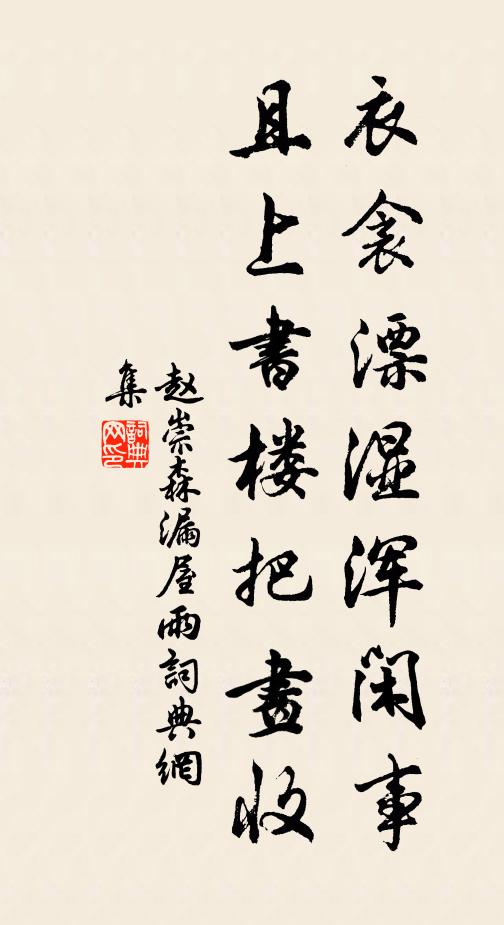 衣衾漂湿浑闲事
且上書楼把畫收
赵崇森漏屋雨詞典網
集
詞典网印